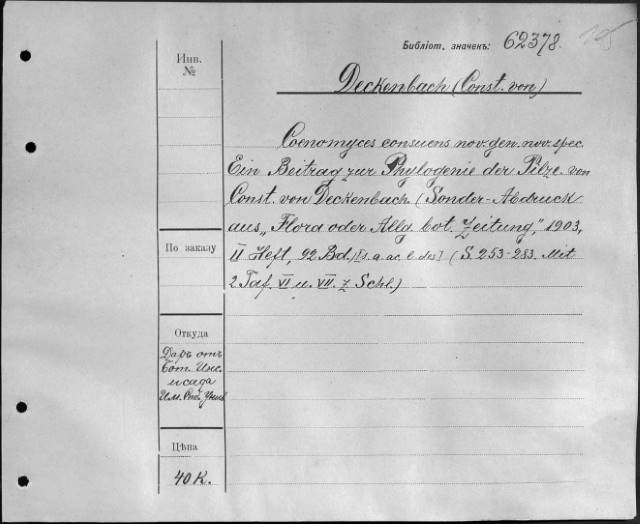 Библіот. значекъ: 62378.
Инв.
№
Deckenbach (Const. von)
Coenomyces consuens nov. gen. nov. spec.
Ein Beitrag zur Phylogenie der Pilze. von
Const. von Deckenbach. (Sonder-Abdruck
aus „Flora oder Allg. bot. Zeitung", 1903,
II Heft, 92 Bd.) [s. a. ac. l. des] (S. 253-283. Mit
2 Taf. VI u. VII. z Schl.)
По заказу
Откуда
Даръ отъ
Бот. Инс.
и сада
Им.
Цѣна
40 к.